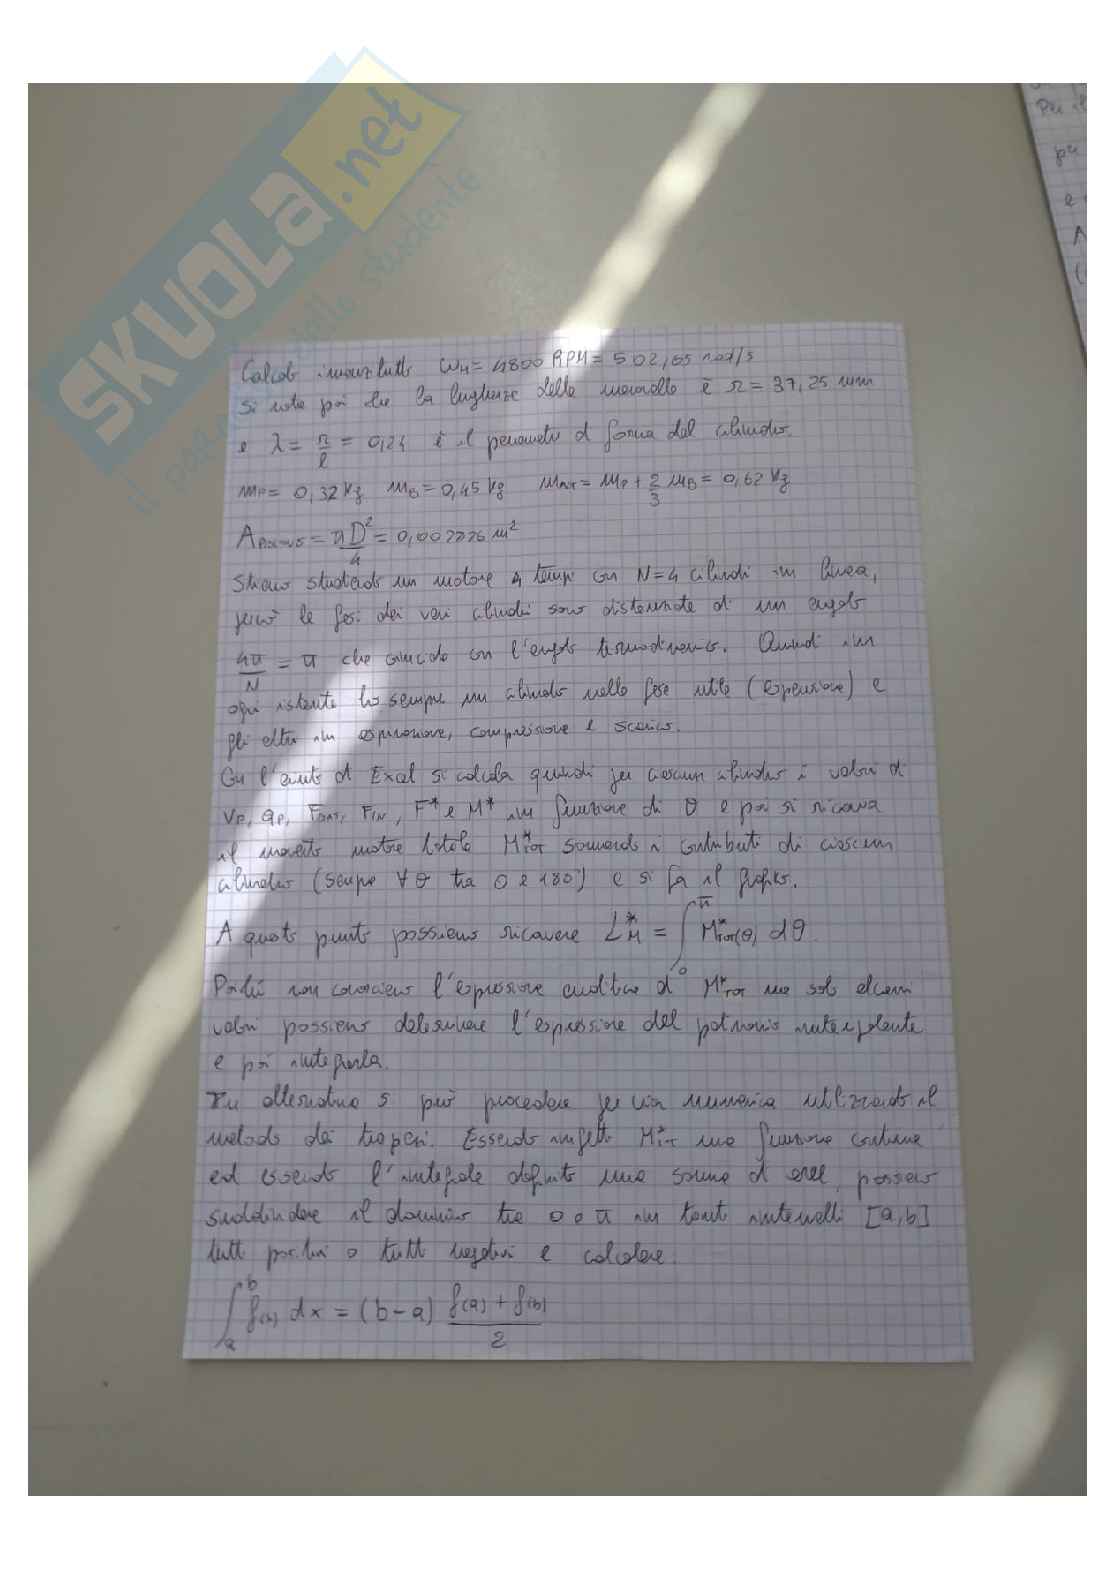 SKUOLA.net
il paradiso dello studente
Calcolo innanzitutto ωM = 4800 RPM = 502,65 rad/s
Si nota poi che la lunghezza della manovella è r = 37,25 mm
e λ = r/l = 0,24 è il parametro di forma del cilindro.
mP = 0,32 kg mB = 0,45 kg mALT = mP + 2/3 mB = 0,62 kg
A = πD²/4 = m²
Stiamo studiando un motore 4 tempi con N=4 cilindri in linea,
perciò le fasi dei vari cilindri sono distanziate di un angolo
4π/N = π che coincide con l'angolo termodinamico. Quindi in
ogni istante ho sempre un cilindro nella fase utile (espansione) e
gli altri in aspirazione, compressione e scarico.
Con l'aiuto di Excel si calcola quindi per ciascun cilindro i valori di
VP, aP, FIN, F* e M* in funzione di θ e poi si ricava
il momento motore totale M*TOT sommando i contributi di ciascun
cilindro (sempre ∀ θ tra 0 e 180°) e si fa il grafico.
A questo punto possiamo ricavare L*M = ∫₀^π M*TOT(θ) dθ.
Poiché non conosciamo l'espressione analitica di M*TOT ma solo alcuni
valori possiamo determinare l'espressione del polinomio interpolante
e poi integrarla.
In alternativa si può procedere per via numerica utilizzando il
metodo dei trapezi. Essendo infatti M*TOT una funzione continua
ed essendo l'integrale definito una somma di aree, possiamo
suddividere il dominio tra 0 e π in tanti intervalli [a,b]
tutti positivi o tutti negativi e calcolare:
∫ₐᵇ f(x) dx = (b-a) (f(a) + f(b))/2